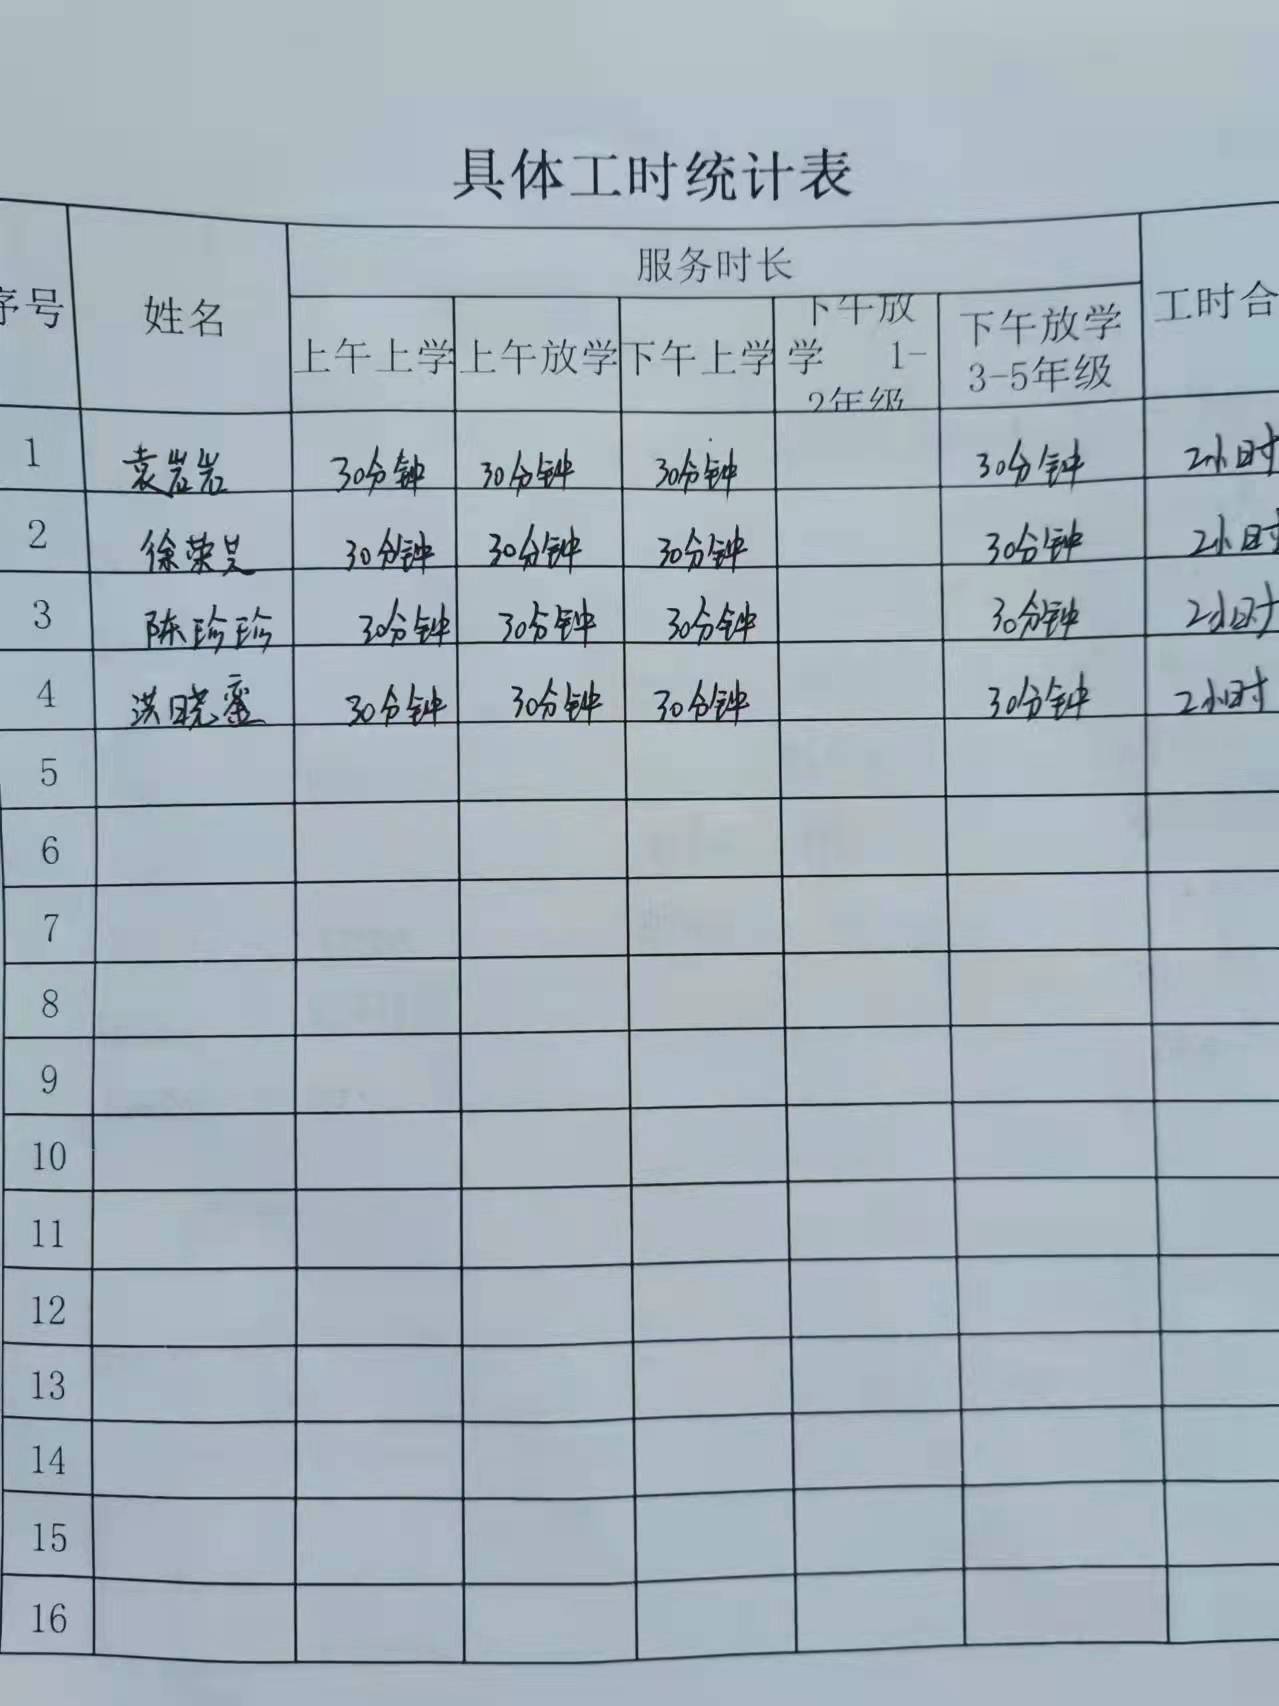 具体工时统计表
序号 姓名 服务时长 工时合
上午上学 上午放学 下午上学 下午放学 1-2年级 下午放学 3-5年级
1 袁岩岩 30分钟 30分钟 30分钟 30分钟 2小时
2 徐荣昊 30分钟 30分钟 30分钟 30分钟 2小时
3 陈珍珍 30分钟 30分钟 30分钟 30分钟 2小时
4 洪晓蛮 30分钟 30分钟 30分钟 30分钟 2小时
5
6
7
8
9
10
11
12
13
14
15
16